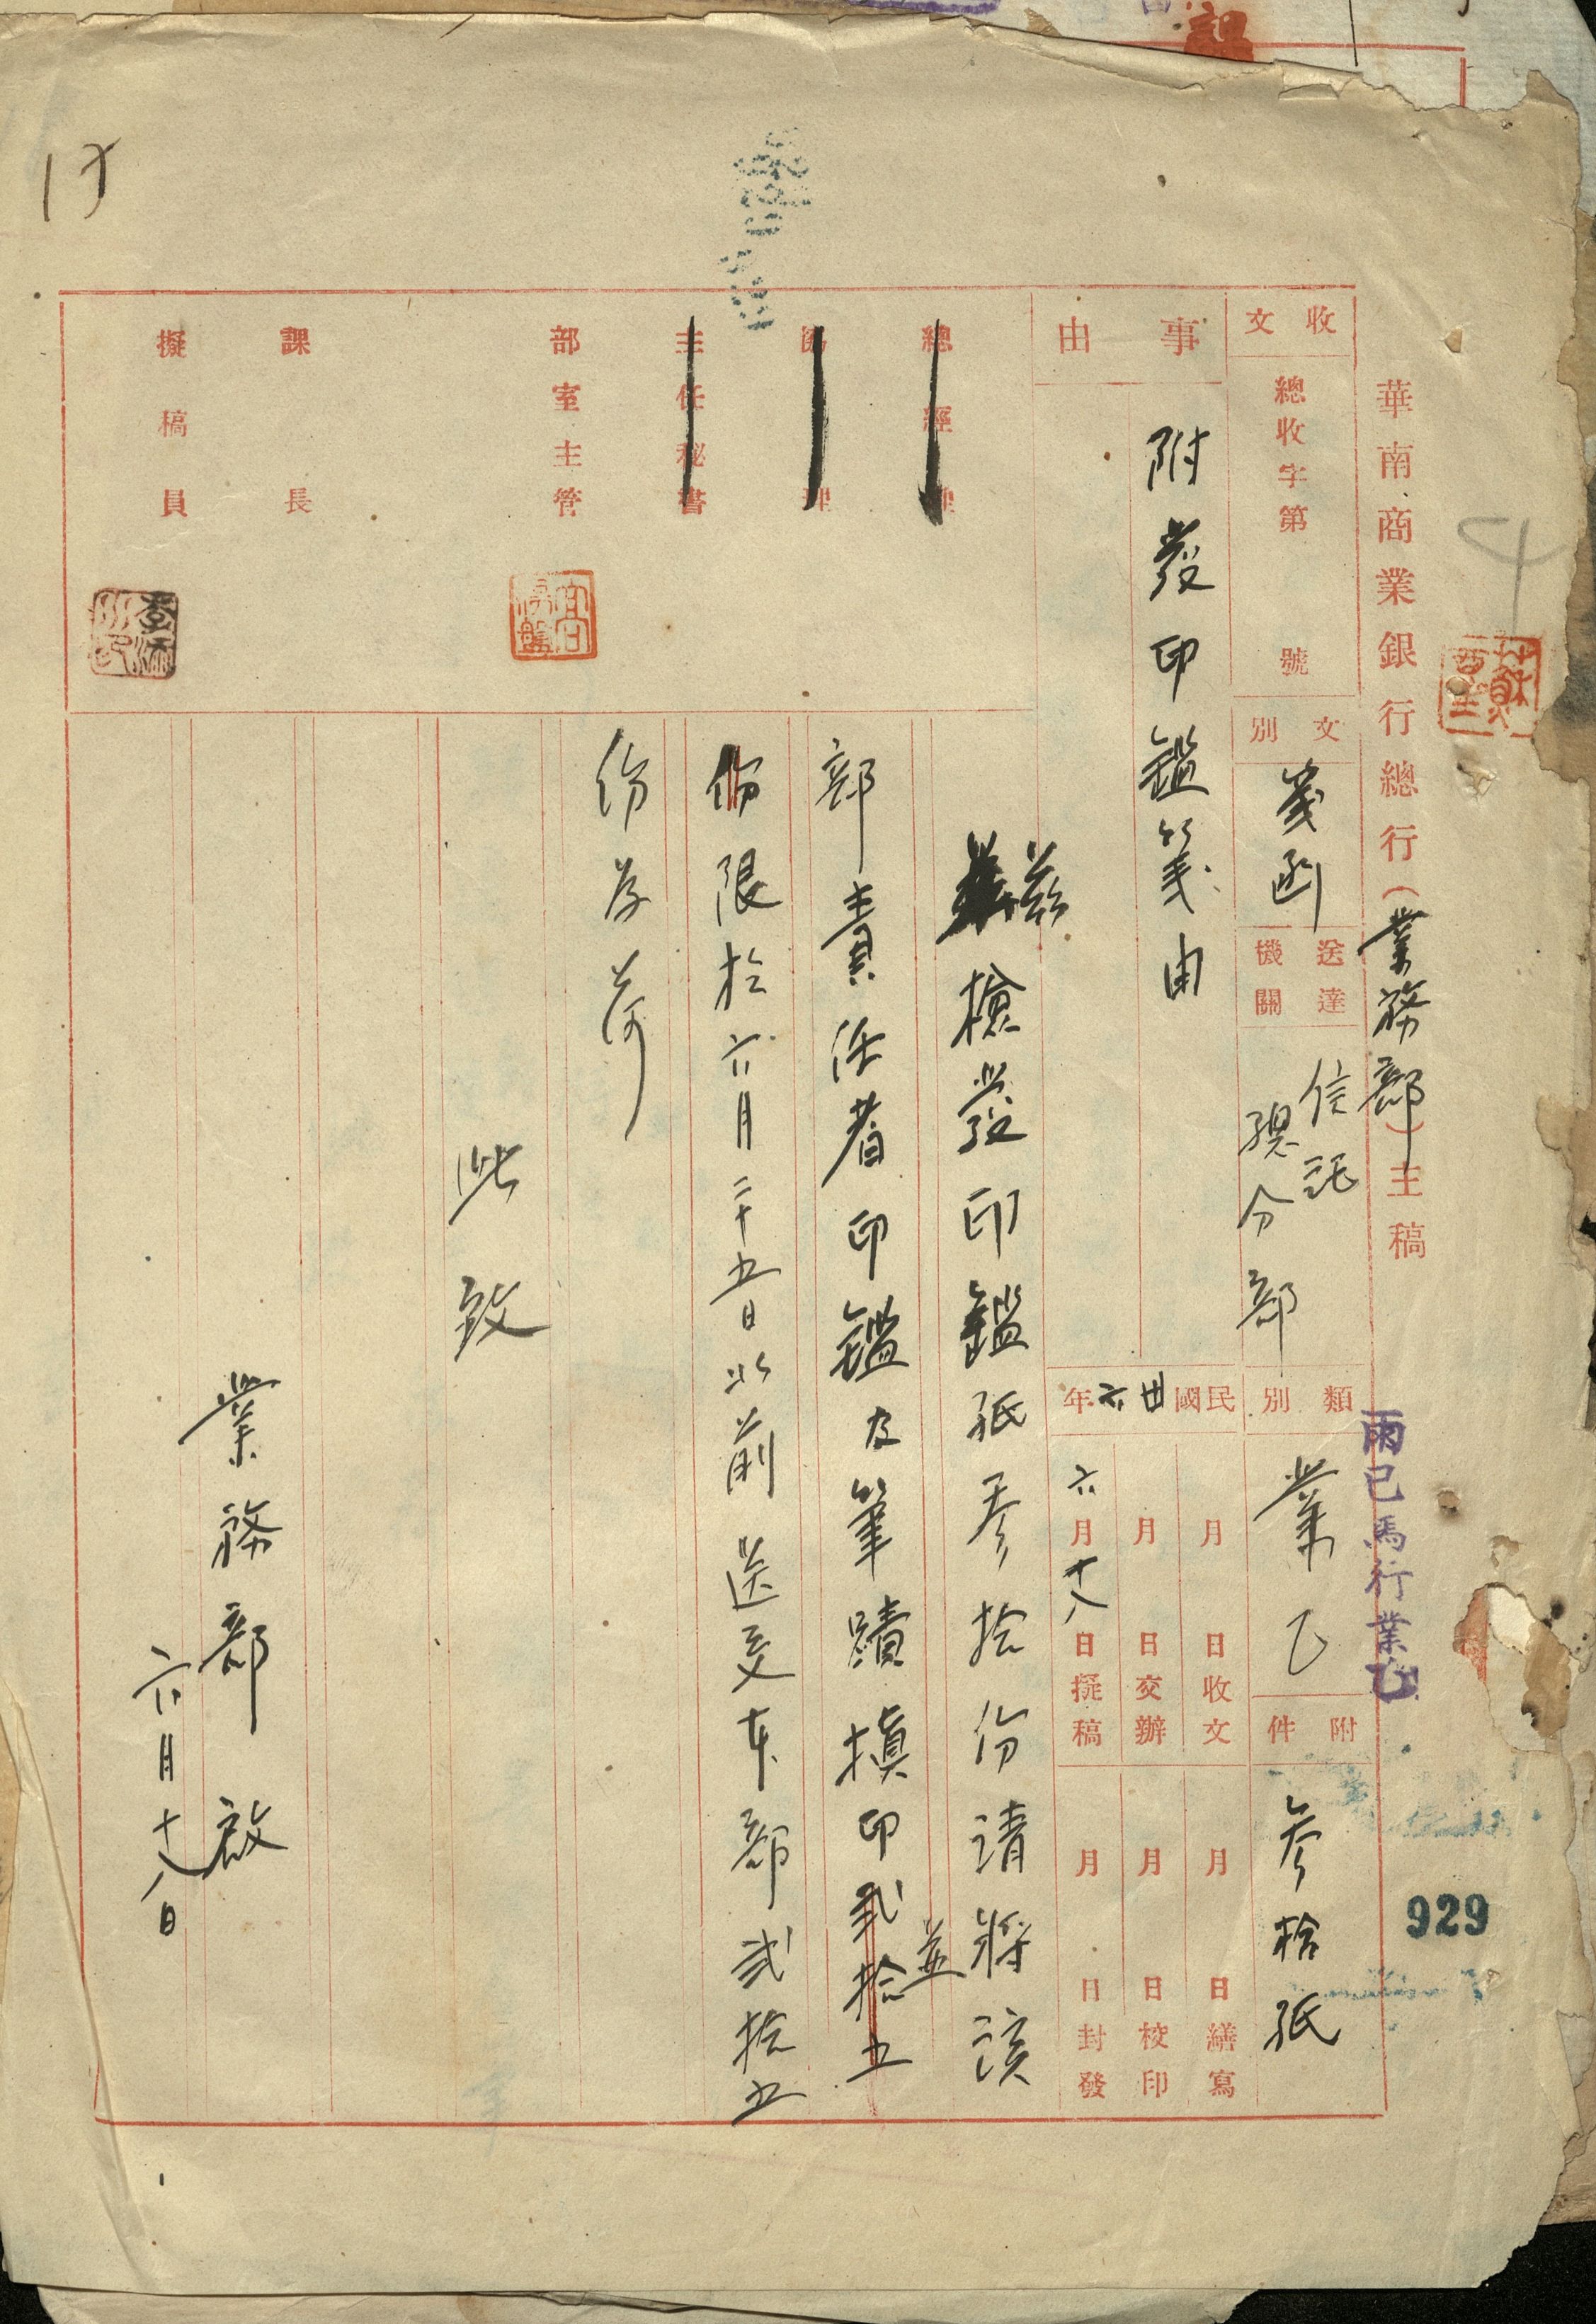 華南商業銀行總行(業務部)主稿
收文
總收字第 號
文別
箋函
送達機關
信託
總分部
類別
業乙
附件
參拾紙
事由
附發印鑑箋由
民國卅六年
月 日收文
月 日交辦
六月十八日擬稿
月 日繕寫
月 日校印
月 日封發
總經理
協理
主任秘書
部室主管
課長
擬稿員
茲檢發印鑑紙參拾份請將該
部責任者印鑑及筆蹟摃印貳拾五
並
份限於六月二十五日以前送交本部貳拾五
份為荷
此致
業務部啟
六月十八日
雨已馬行業乙
929